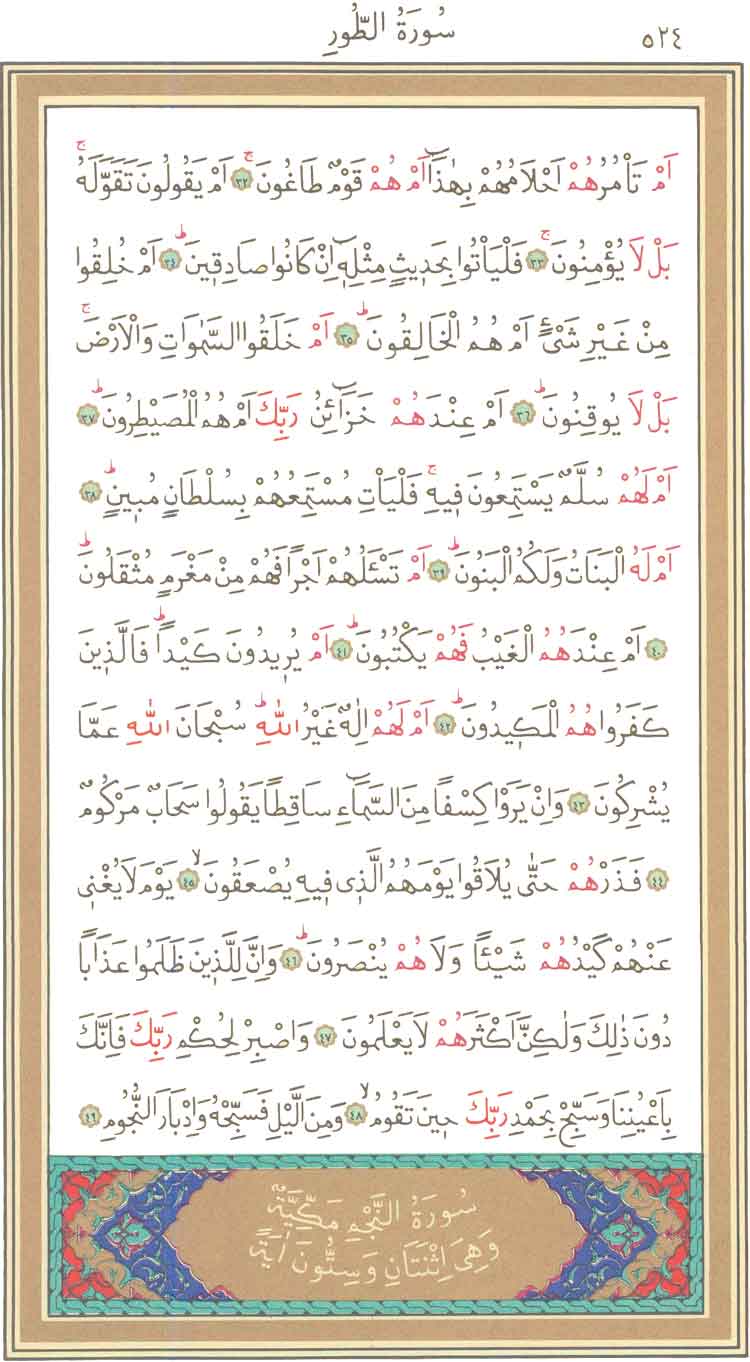 سُورَةُ الطُّورِ ٥٢٤
اَمْ تَأْمُرُهُمْ اَحْلَامُهُمْ بِهٰذَٓا اَمْ هُمْ قَوْمٌ طَاغُونَۚ ﴿٣٢﴾ اَمْ يَقُولُونَ تَقَوَّلَهُۚ
بَلْ لَا يُؤْمِنُونَۚ ﴿٣٣﴾ فَلْيَأْتُوا بِحَدٖيثٍ مِثْلِهٖٓ اِنْ كَانُوا صَادِقٖينَۜ ﴿٣٤﴾ اَمْ خُلِقُوا
مِنْ غَيْرِ شَيْءٍ اَمْ هُمُ الْخَالِقُونَۜ ﴿٣٥﴾ اَمْ خَلَقُوا السَّمٰوَاتِ وَالْاَرْضَۚ
بَلْ لَا يُوقِنُونَۜ ﴿٣٦﴾ اَمْ عِنْدَهُمْ خَزَٓائِنُ رَبِّكَ اَمْ هُمُ الْمُصَيْطِرُونَۜ ﴿٣٧﴾
اَمْ لَهُمْ سُلَّمٌ يَسْتَمِعُونَ فٖيهِۚ فَلْيَأْتِ مُسْتَمِعُهُمْ بِسُلْطَانٍ مُبٖينٍۜ ﴿٣٨﴾
اَمْ لَهُ الْبَنَاتُ وَلَكُمُ الْبَنُونَۜ ﴿٣٩﴾ اَمْ تَسْـَٔلُهُمْ اَجْرًا فَهُمْ مِنْ مَغْرَمٍ مُثْقَلُونَۜ
﴿٤٠﴾ اَمْ عِنْدَهُمُ الْغَيْبُ فَهُمْ يَكْتُبُونَۜ ﴿٤١﴾ اَمْ يُرٖيدُونَ كَيْدًاۜ فَالَّذٖينَ
كَفَرُوا هُمُ الْمَكٖيدُونَۜ ﴿٤٢﴾ اَمْ لَهُمْ اِلٰهٌ غَيْرُ اللّٰهِۜ سُبْحَانَ اللّٰهِ عَمَّا
يُشْرِكُونَ ﴿٤٣﴾ وَاِنْ يَرَوْا كِسْفًا مِنَ السَّمَٓاءِ سَاقِطًا يَقُولُوا سَحَابٌ مَرْكُومٌ
﴿٤٤﴾ فَذَرْهُمْ حَتّٰى يُلَاقُوا يَوْمَهُمُ الَّذٖي فٖيهِ يُصْعَقُونَۙ ﴿٤٥﴾ يَوْمَ لَا يُغْنٖي
عَنْهُمْ كَيْدُهُمْ شَيْـًٔا وَلَا هُمْ يُنْصَرُونَۜ ﴿٤٦﴾ وَاِنَّ لِلَّذٖينَ ظَلَمُوا عَذَابًا
دُونَ ذٰلِكَ وَلٰكِنَّ اَكْثَرَهُمْ لَا يَعْلَمُونَ ﴿٤٧﴾ وَاصْبِرْ لِحُكْمِ رَبِّكَ فَاِنَّكَ
بِاَعْيُنِنَا وَسَبِّحْ بِحَمْدِ رَبِّكَ حٖينَ تَقُومُۙ ﴿٤٨﴾ وَمِنَ الَّيْلِ فَسَبِّحْهُ وَاِدْبَارَ النُّجُومِ ﴿٤٩﴾
سُورَةُ النَّجْمِ مَكِّيَّةٌ
وَهِيَ اِثْنَتَانِ وَسِتُّونَ اٰيَةً